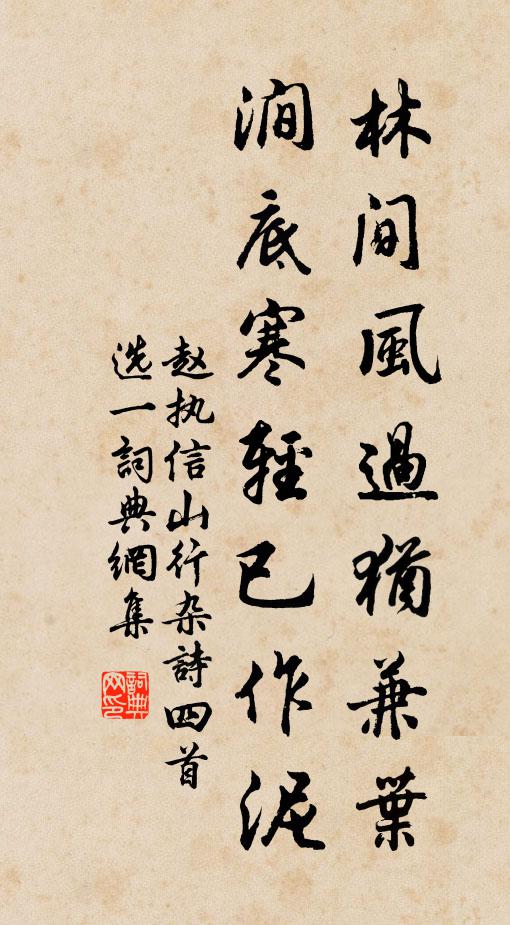 林间風過猶兼葉
澗底寒輕已作泥
赵执信山行杂詩四首
选一詞典網集
詞典
网印